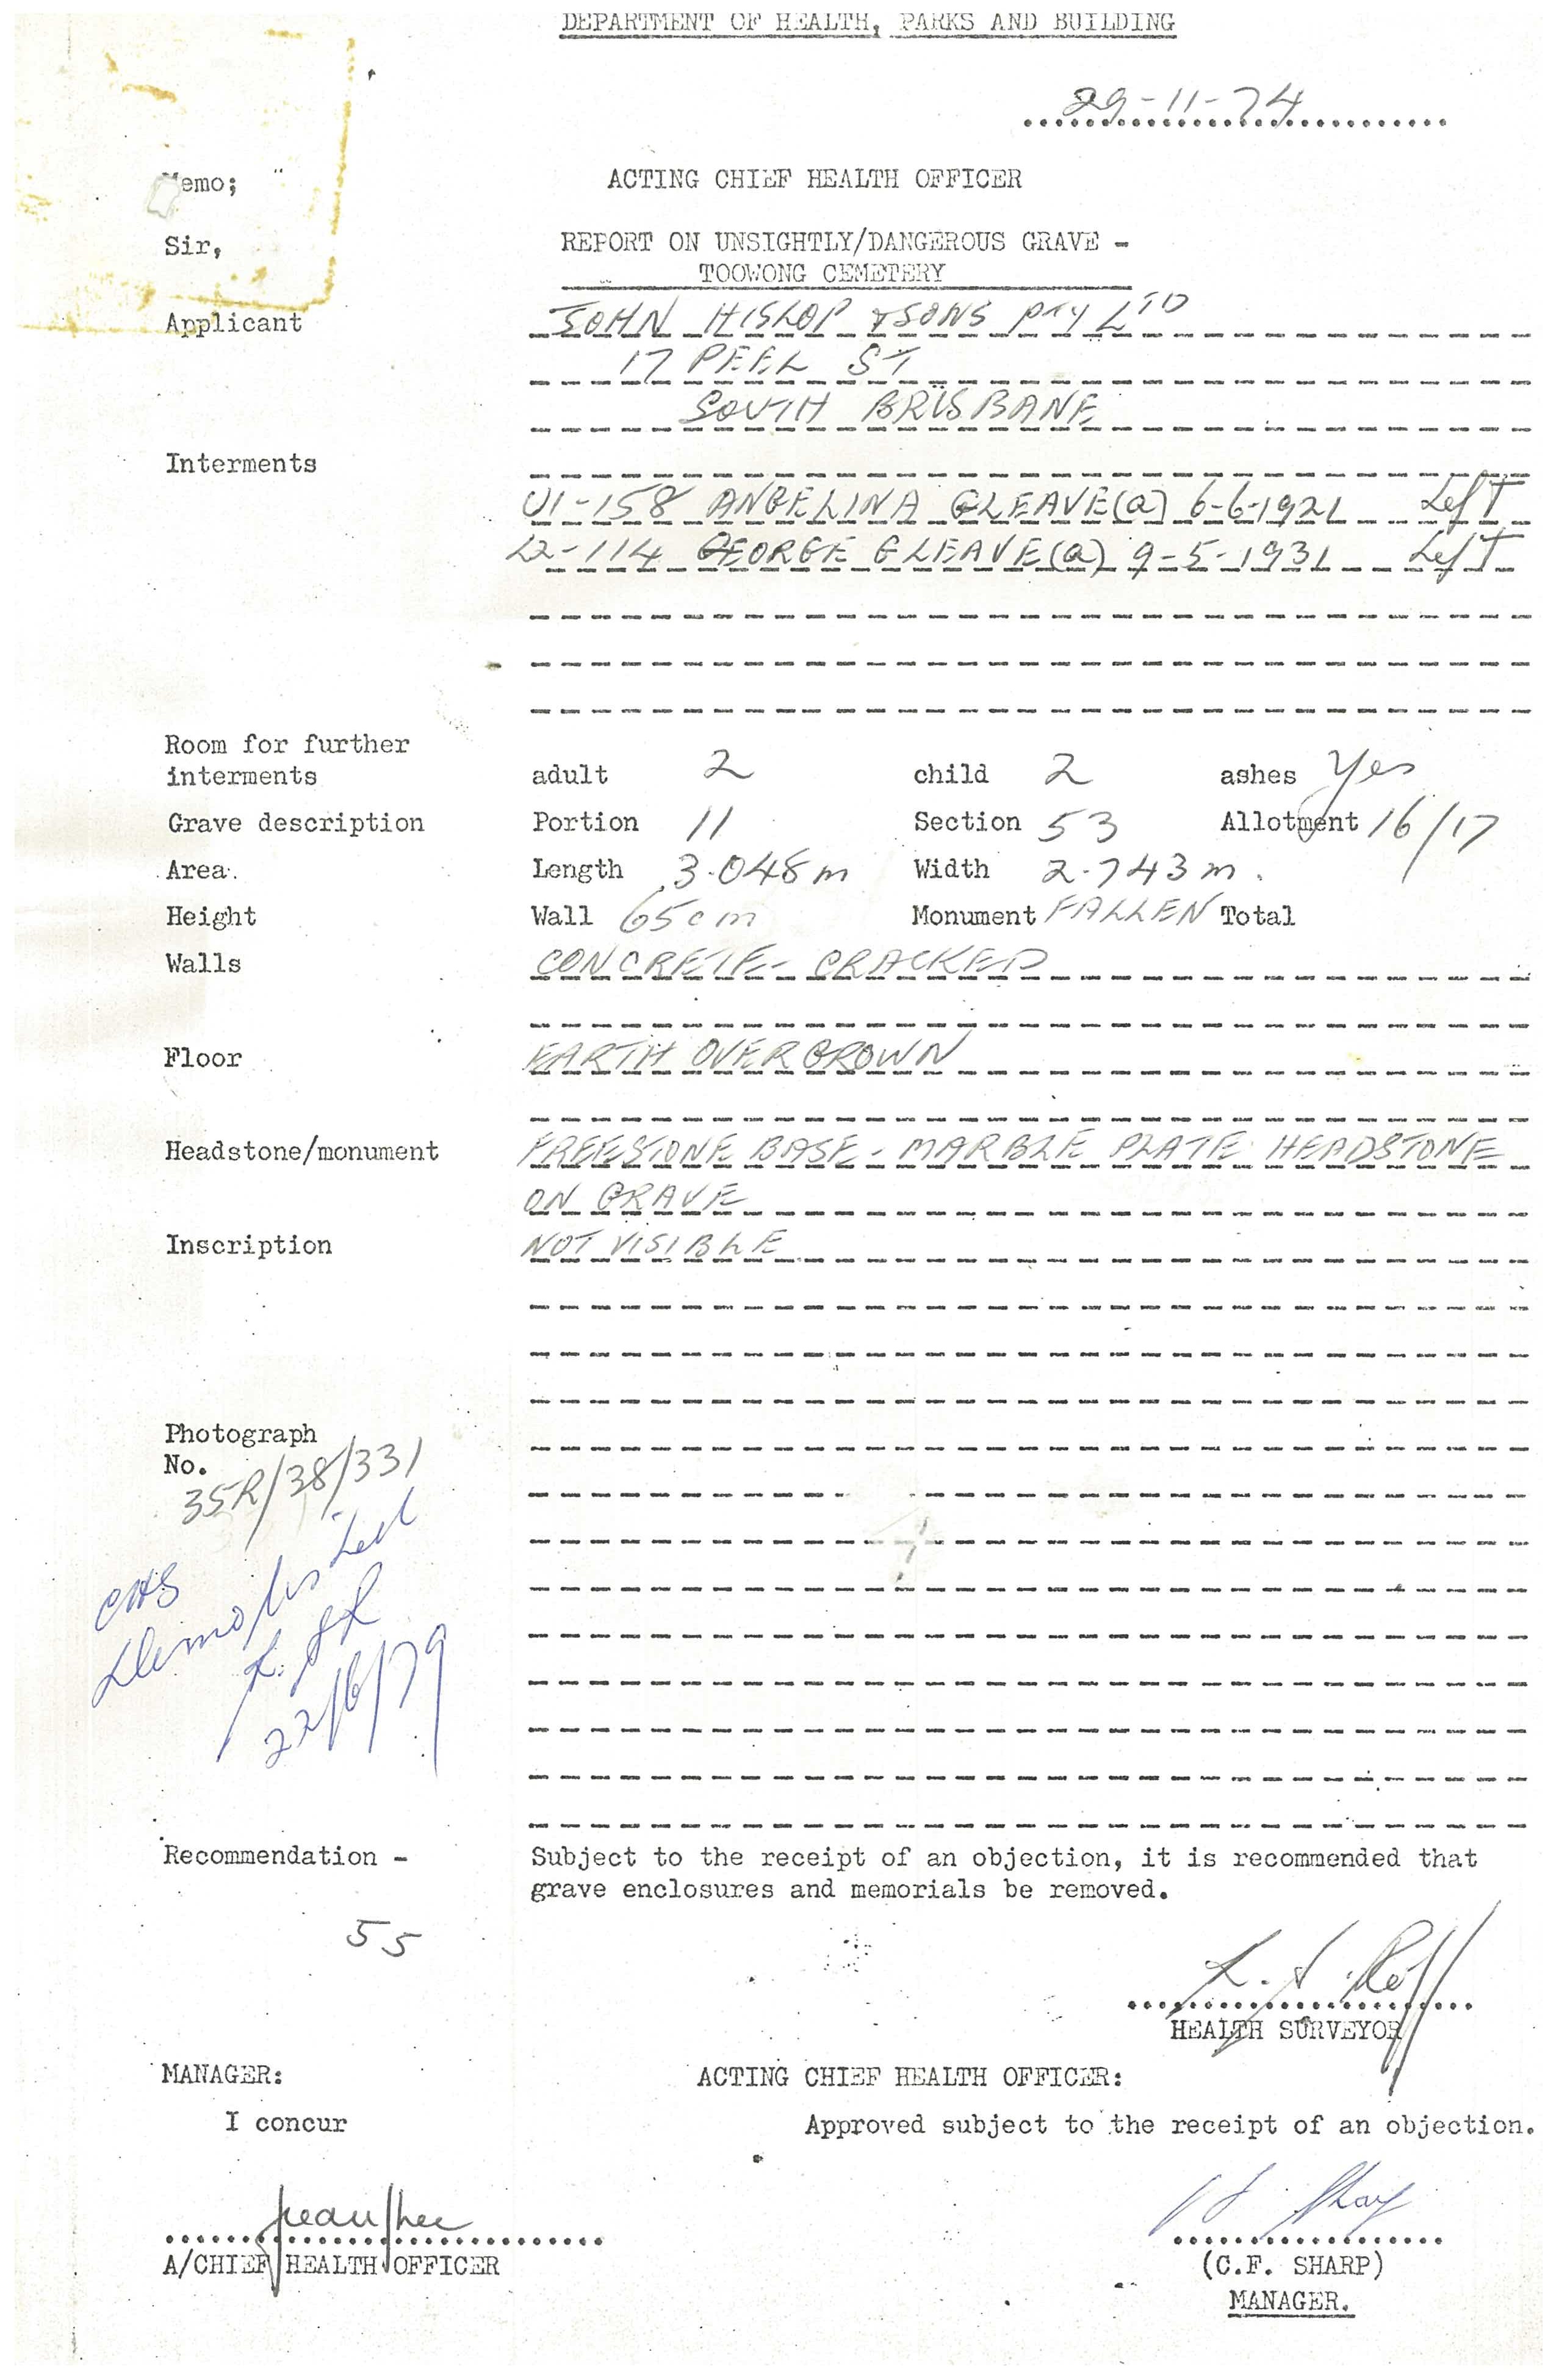 DEPARTMENT OF HEALTH, PARKS AND BUILDING
29-11-74
Memo; ACTING CHIEF HEALTH OFFICER
Sir, REPORT ON UNSIGHTLY/DANGEROUS GRAVE -
TOOWONG CEMETERY
Applicant JOHN HISLOP & SONS PTY LTD
17 PEEL ST
SOUTH BRISBANE
Interments
U1-158 ANGELINA GLEAVE (a) 6-6-1921 Left
L2-114 GEORGE GLEAVE (a) 9-5-1931 Left
Room for further
interments adult 2 child 2 ashes Yes
Grave description Portion 11 Section 53 Allotment 16/17
Area. Length 3.048m Width 2.743m.
Height Wall 65cm Monument FALLEN Total
Walls CONCRETE - CRACKED
Floor EARTH OVERGROWN
Headstone/monument FREESTONE BASE - MARBLE PLATE HEADSTONE
ON GRAVE
Inscription NOT VISIBLE
Photograph
No.
35R/38/331
CHS
Demolished
22/6/79
Recommendation - Subject to the receipt of an objection, it is recommended that
grave enclosures and memorials be removed.
55
HEALTH SURVEYOR
MANAGER: ACTING CHIEF HEALTH OFFICER:
I concur Approved subject to the receipt of an objection.
A/CHIEF HEALTH OFFICER (C.F. SHARP)
MANAGER.